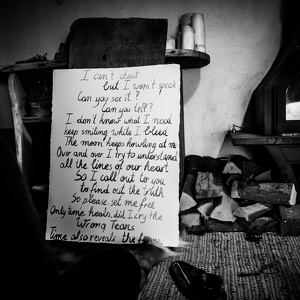 I can't cheat
but I won't speak
Can you see it?
Can you tell?
I don't know what I need
keep smiling while I bleed
The moon keeps howling at me
Over and over I try to understand
all the lines of our heart
So I call out to you
to find out the truth
So please, set me free
Only time heals, did I cry the
Wrong Tears
Time also reveals the